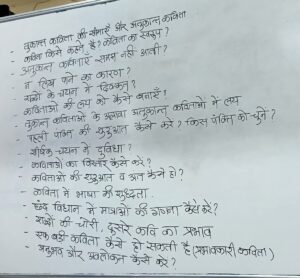 - तुकान्त कविता की सीमाएँ और अतुकान्त कविता
- कविता किसे कहते हैं? कविता का स्वरूप?
- अतुकान्त कविताएँ समझ नहीं आती?
- न लिख पाने का कारण?
- शब्दों के चयन में दिक्कत?
- कविताओं की लय को कैसे बनाएँ?
- तुकान्त कविताओं के अलावा अतुकान्त कविताओं में लय
- पहली पंक्ति की शुरुआत कैसे करें? किस पंक्ति को चुनें?
- शीर्षक चयन में दुविधा?
- कविताओं का विस्तार कैसे करें?
- कविताओं की शुरुआत व अंत कैसे हो?
- कविता में भाषा की शुद्धता.
- छंद विधान में मात्राओं की गणना कैसे करें?
- शब्दों की चोरी, दूसरे कवि का प्रभाव
- एक बड़ी कविता कैसे हो सकती है (प्रभावकारी कविता)
- अनुभव और अवलोकन कैसे करें?